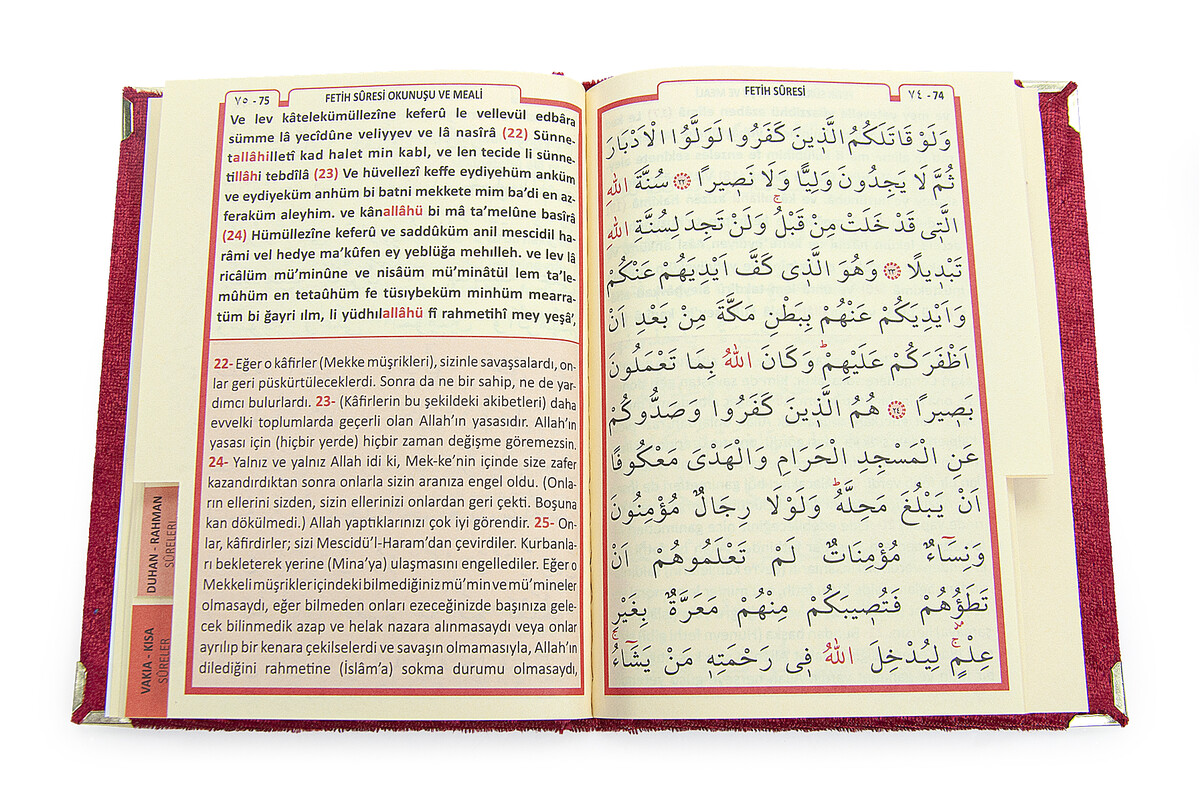 ٧٥ - 75
FETİH SÛRESİ OKUNUŞU VE MEALİ
Ve lev kâtelekümüllezîne keferû le vellevül edbâra
sümme lâ yecîdûne veliyyev ve lâ nasîrâ (22) Sünne-
tallâhilletî kad halet min kabl, ve len tecide li sünne-
tillâhi tebdîlâ (23) Ve hüvellezî keffe eydiyehüm anküm
ve eydiyeküm anhüm bi batni mekkete mim ba'di en az-
feraküm aleyhim. ve kânallâhü bi mâ ta'melûne basîrâ
(24) Hümüllezîne keferû ve saddûküm anil mescidil ha-
râmi vel hedye ma'kûfen ey yeblüğa mehılleh. ve lev lâ
ricâlüm mü'minûne ve nisâüm mü'minâtül lem ta'le-
mûhüm en tetaûhüm fe tüsıybeküm minhüm mearra-
tüm bi ğayri ılm, li yüdhılallâhü fî rahmetihî mey yeşâ',
22- Eğer o kâfirler (Mekke müşrikleri), sizinle savaşsalardı, on-
lar geri püskürtüleceklerdi. Sonra da ne bir sahip, ne de yar-
dımcı bulurlardı. 23- (Kâfirlerin bu şekildeki akibetleri) daha
evvelki toplumlarda geçerli olan Allah'ın yasasıdır. Allah'ın
yasası için (hiçbir yerde) hiçbir zaman değişme göremezsin.
24- Yalnız ve yalnız Allah idi ki, Mek-ke'nin içinde size zafer
kazandırdıktan sonra onlarla sizin aranıza engel oldu. (Onla-
rın ellerini sizden, sizin ellerinizi onlardan geri çekti. Boşuna
kan dökülmedi.) Allah yaptıklarınızı çok iyi görendir. 25- On-
lar, kâfirdirler; sizi Mescidü'l-Haram'dan çevirdiler. Kurbanla-
rı bekleterek yerine (Mina'ya) ulaşmasını engellediler. Eğer o
Mekkeli müşrikler içindeki bilmediğiniz mü'min ve mü'mineler
olmasaydı, eğer bilmeden onları ezeceğinizde başınıza gele-
cek bilinmedik azap ve helak nazara alınmasaydı veya onlar
ayrılıp bir kenara çekilselerdi ve savaşın olmamasıyla, Allah'ın
dilediğini rahmetine (İslâm'a) sokma durumu olmasaydı,
DUHAN - RAHMAN
SÛRELERİ
VAKIA - KISA
SÛRELER
FETİH SÛRESİ
٧٤ - 74
وَلَوْ قَاتَلَكُمُ الَّذ۪ينَ كَفَرُوا لَوَلَّوُا الْاَدْبَارَ
ثُمَّ لَا يَجِدُونَ وَلِيًّا وَلَا نَص۪يرًا ﴿٢٢﴾ سُنَّةَ اللّٰهِ
الَّت۪ى قَدْ خَلَتْ مِنْ قَبْلُۚ وَلَنْ تَجِدَ لِسُنَّةِ اللّٰهِ
تَبْد۪يلًا ﴿٢٣﴾ وَهُوَ الَّذ۪ى كَفَّ اَيْدِيَهُمْ عَنْكُمْ
وَاَيْدِيَكُمْ عَنْهُمْ بِبَطْنِ مَكَّةَ مِنْ بَعْدِ اَنْ
اَظْفَرَكُمْ عَلَيْهِمْۜ وَكَانَ اللّٰهُ بِمَا تَعْمَلُونَ
بَص۪يرًا ﴿٢٤﴾ هُمُ الَّذ۪ينَ كَفَرُوا وَصَدُّوكُمْ
عَنِ الْمَسْجِدِ الْحَرَامِ وَالْهَدْىَ مَعْكُوفًا
اَنْ يَبْلُغَ مَحِلَّهُۜ وَلَوْلَا رِجَالٌ مُؤْمِنُونَ
وَنِسَٓاءٌ مُؤْمِنَاتٌ لَمْ تَعْلَمُوهُمْ اَنْ
تَطَؤُ۫هُمْ فَتُص۪يبَكُمْ مِنْهُمْ مَعَرَّةٌ بِغَيْرِ
عِلْمٍۚ لِيُدْخِلَ اللّٰهُ ف۪ى رَحْمَتِه۪ مَنْ يَشَٓاءُۚ